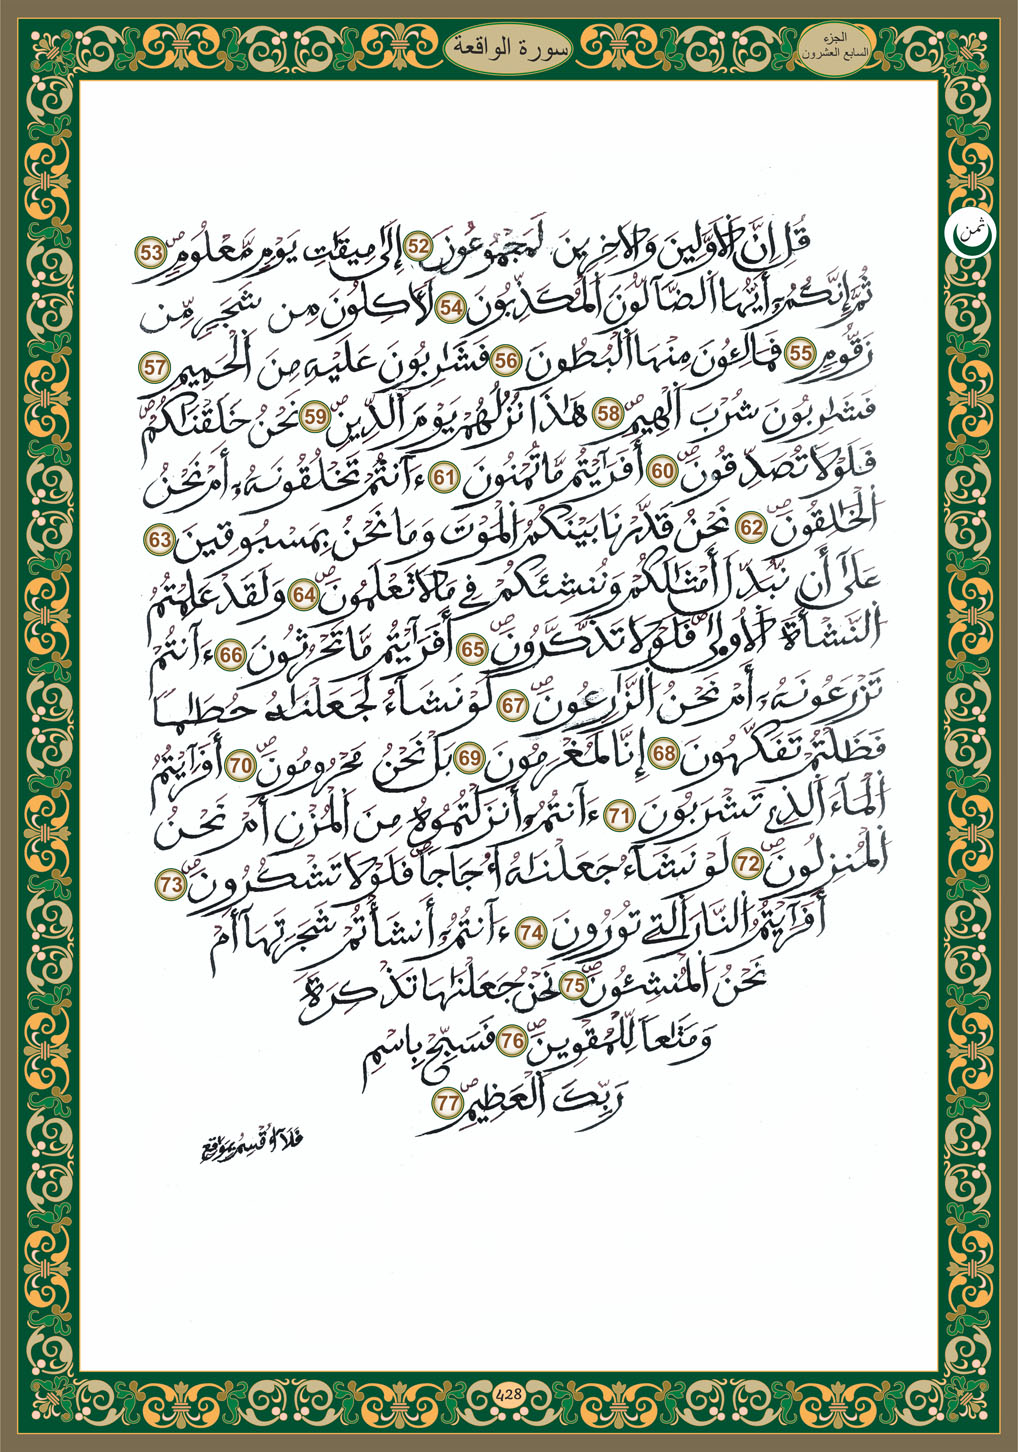 الجزء
السابع العشرون
سورة الواقعة
ثمن
قُلِ اِنَّ اَ۬لَاوَّلِينَ وَالَاخِرِينَ لَمَجْمُوعُونَ 52 إِلَىٰ مِيقَٰتِ يَوْمٖ مَّعْلُومٖۖ 53
ثُمَّ إِنَّكُمُۥٓ أَيُّهَا اَ۬لضَّآلُّونَ اَ۬لْمُكَذِّبُونَ 54 لَأٓكِلُونَ مِن شَجَرٖ مِّن
زَقُّومٖ 55 فَمَالِـُٔونَ مِنْهَا اَ۬لْبُطُونَ 56 فَشَٰرِبُونَ عَلَيْهِ مِنَ اَ۬لْحَمِيمِ 57
فَشَٰرِبُونَ شُرْبَ اَ۬لْهِيمِۖ 58 هَٰذَا نُزُلُهُمْ يَوْمَ اَ۬لدِّينِۖ 59 نَحْنُ خَلَقْنَٰكُمْۖ
فَلَوْلَا تُصَدِّقُونَۖ 60 أَفَرَٰٓيْتُم مَّا تُمْنُونَ 61 ءَآنتُمْ تَخْلُقُونَهُۥٓ أَمْ نَحْنُ
اُ۬لْخَٰلِقُونَۖ 62 نَحْنُ قَدَّرْنَا بَيْنَكُمُ اُ۬لْمَوْتَ وَمَا نَحْنُ بِمَسْبُوقِينَ 63
عَلَىٰٓ أَن نُّبَدِّلَ أَمْثَٰلَكُمْ وَنُنشِئَكُمْ فِے مَا لَا تَعْلَمُونَۖ 64 وَلَقَدْ عَلِمْتُمُ
اُ۬لنَّشْأَةَ اَ۬لُاولَىٰ فَلَوْلَا تَذَّكَّرُونَۖ 65 أَفَرَٰٓيْتُم مَّا تَحْرُثُونَ 66 ءَآنتُمْ
تَزْرَعُونَهُۥٓ أَمْ نَحْنُ اُ۬لزَّٰرِعُونَۖ 67 لَوْ نَشَآءُ لَجَعَلْنَٰهُ حُطَٰماٗ
فَظَلْتُمْ تَفَكَّهُونَۖ 68 إِنَّا لَمُغْرَمُونَ 69 بَلْ نَحْنُ مَحْرُومُونَۖ 70 أَفَرَٰٓيْتُمُ
اُ۬لْمَآءَ اَ۬لذِے تَشْرَبُونَ 71 ءَآنتُمُۥٓ أَنزَلْتُمُوهُ مِنَ اَ۬لْمُزْنِ أَمْ نَحْنُ
اُ۬لْمُنزِلُونَۖ 72 لَوْ نَشَآءُ جَعَلْنَٰهُ أُجَاجاٗۖ فَلَوْلَا تَشْكُرُونَۖ 73
أَفَرَٰٓيْتُمُ اُ۬لنَّارَ اَ۬لتِے تُورُونَ 74 ءَآنتُمُۥٓ أَنشَأْتُمْ شَجَرَتَهَآ أَمْ
نَحْنُ اُ۬لْمُنشِـُٔونَۖ 75 نَحْنُ جَعَلْنَٰهَا تَذْكِرَةٗ
وَمَتَٰعاٗ لِّلْمُقْوِينَۖ 76 فَسَبِّحْ بِاسْمِ
رَبِّكَ اَ۬لْعَظِيمِۖ 77
فَلَآ أُقْسِمُ بِمَوَٰقِعِ
428